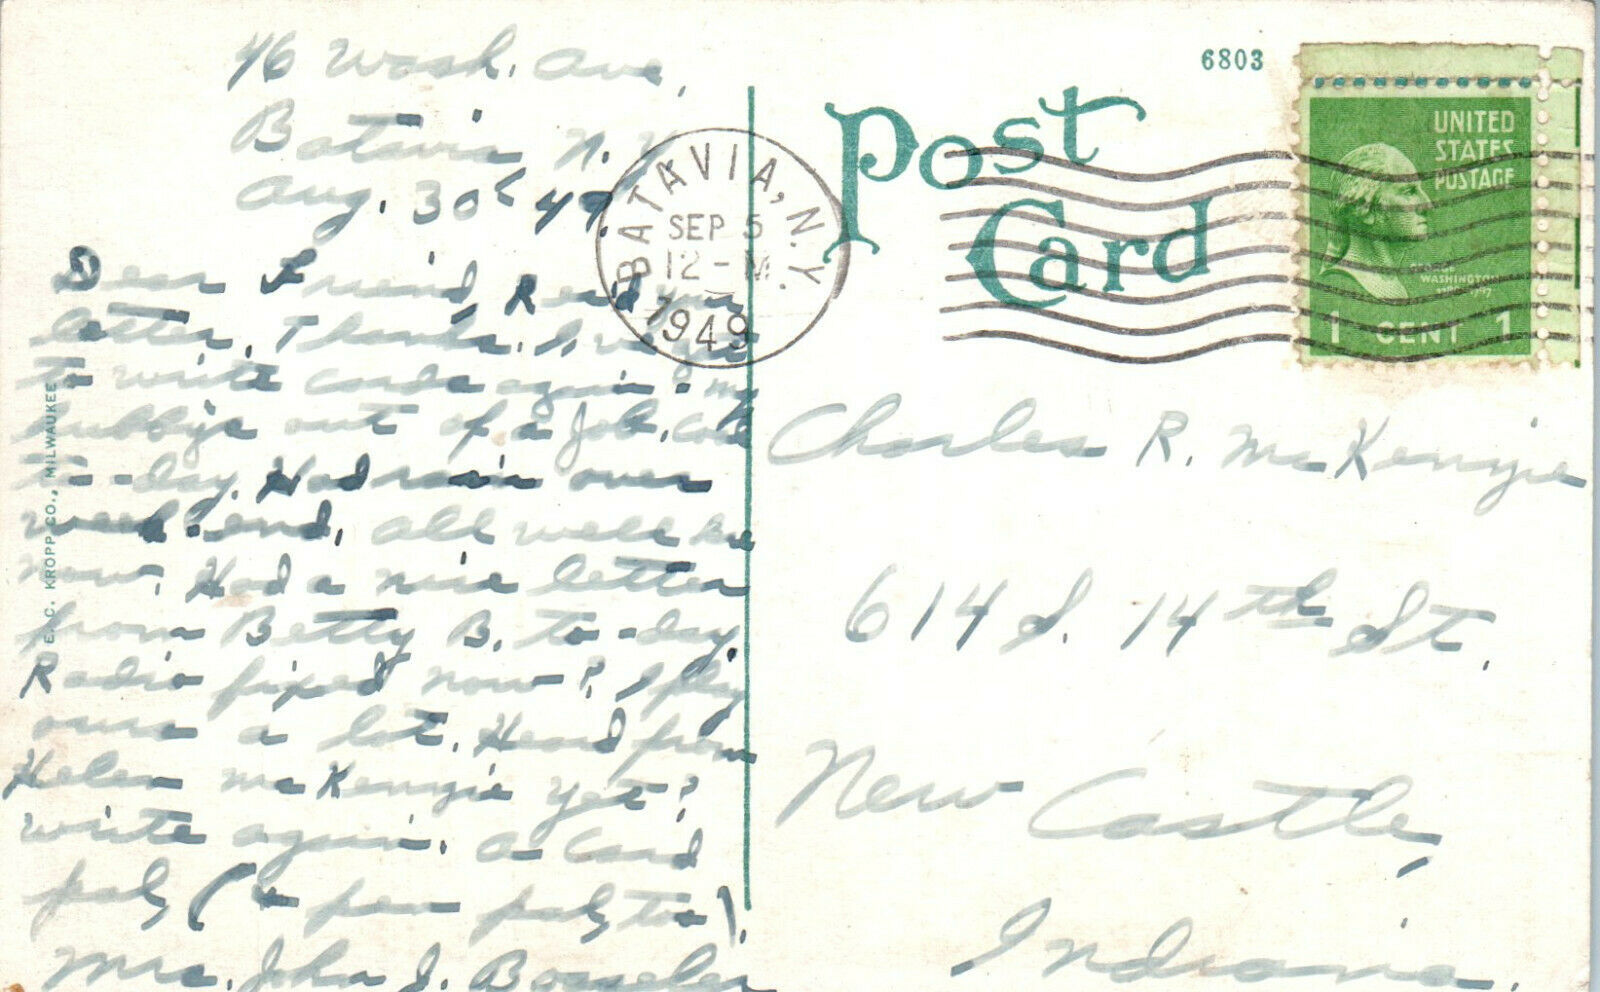 46 Wash. Ave,
Batavia, N.Y.
Aug. 30 '49.
Dear Friend, Read your
letter. Thanks. I've
to write cards again - my
hubby's out of a job. Cold
to-day. Had rain over
week-end. All well here
now. Had a nice letter
from Betty B. to-day.
Radio fixed now? I play
ours a lot. Heard from
Helen McKenzie yet?
Write again. A Card
pal, (+ pen pal, too).
Mrs. John J. Bosseler
E. C. KROPP CO., MILWAUKEE
BATAVIA, N.Y.
SEP 5
12 - M
1949
6803
Post
Card
UNITED
STATES
POSTAGE
GEORGE
WASHINGTON
1 CENT 1
Charles R. McKenzie
614 S. 14th St.
New Castle,
Indiana.